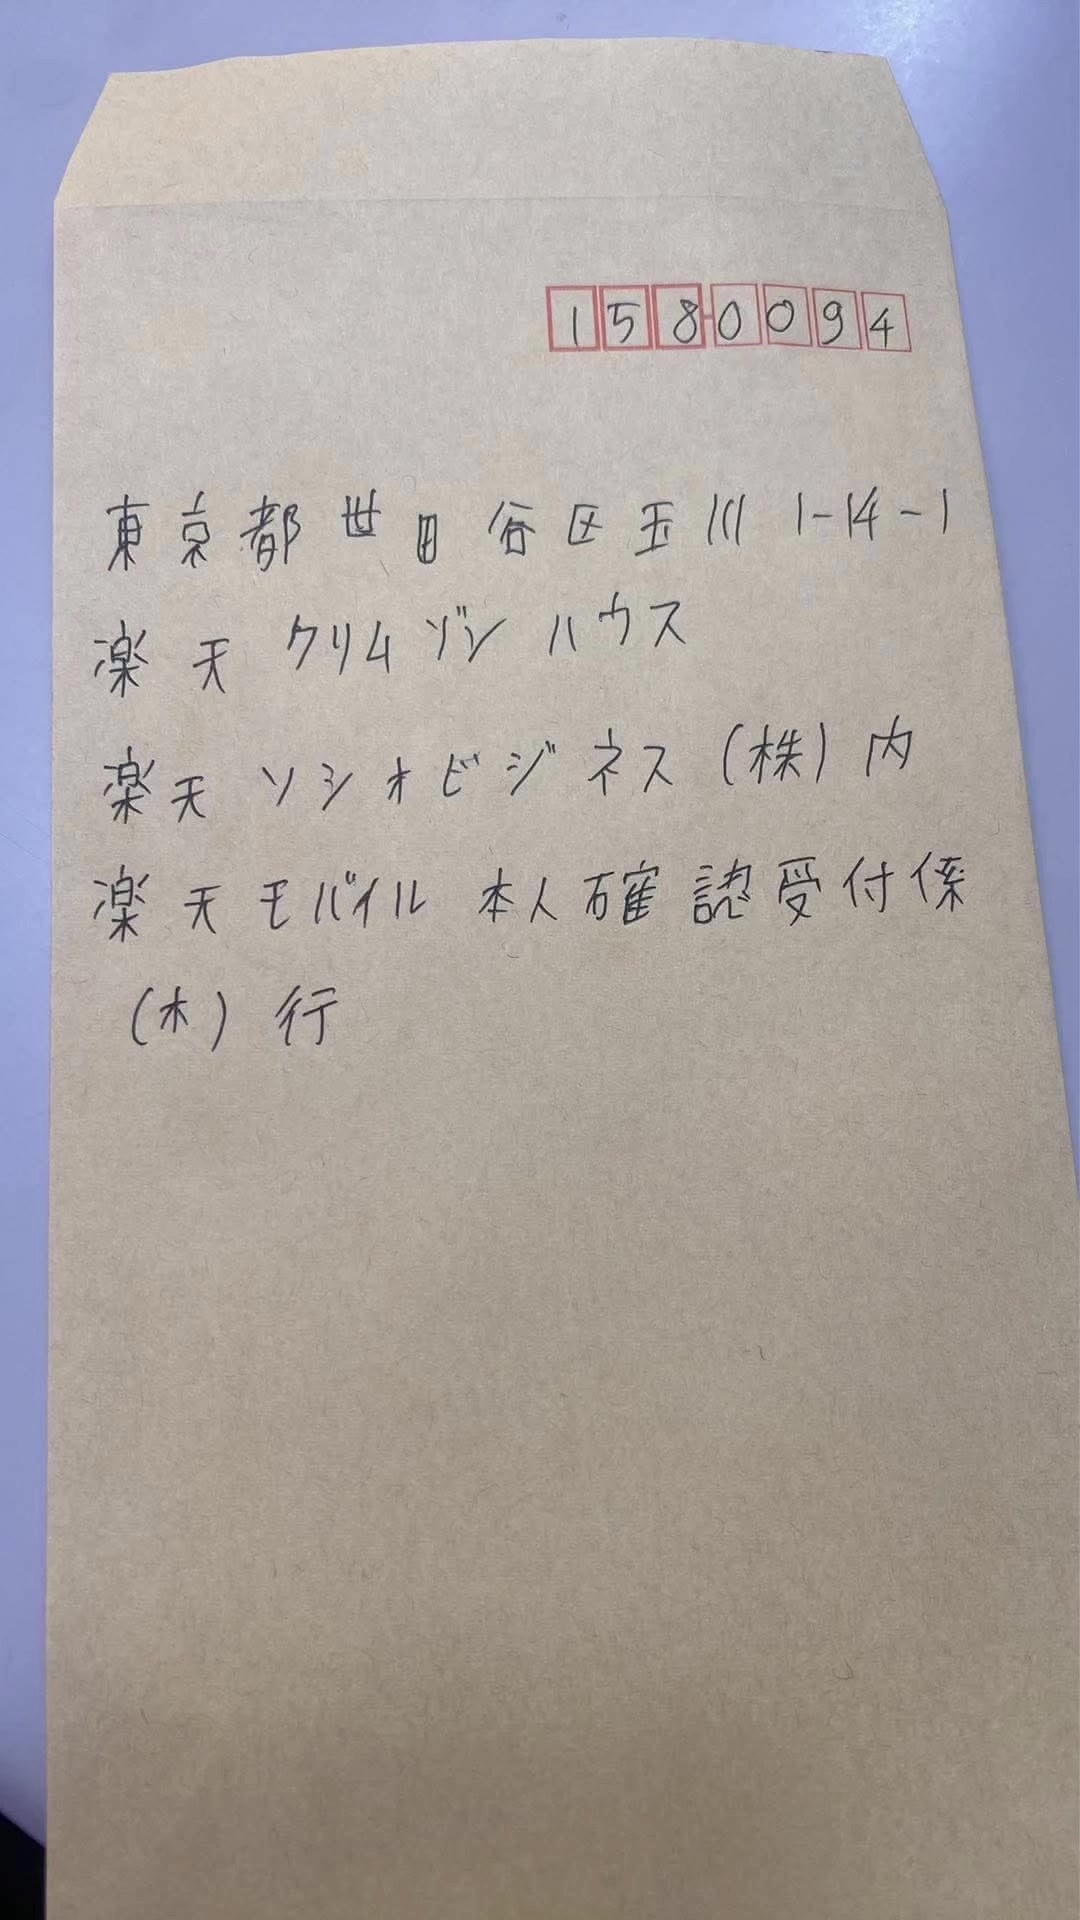 1580094
東京都世田谷区玉川1-14-1
楽天クリムゾンハウス
楽天ソシオビジネス(株)内
楽天モバイル 本人確認受付係
(木)行